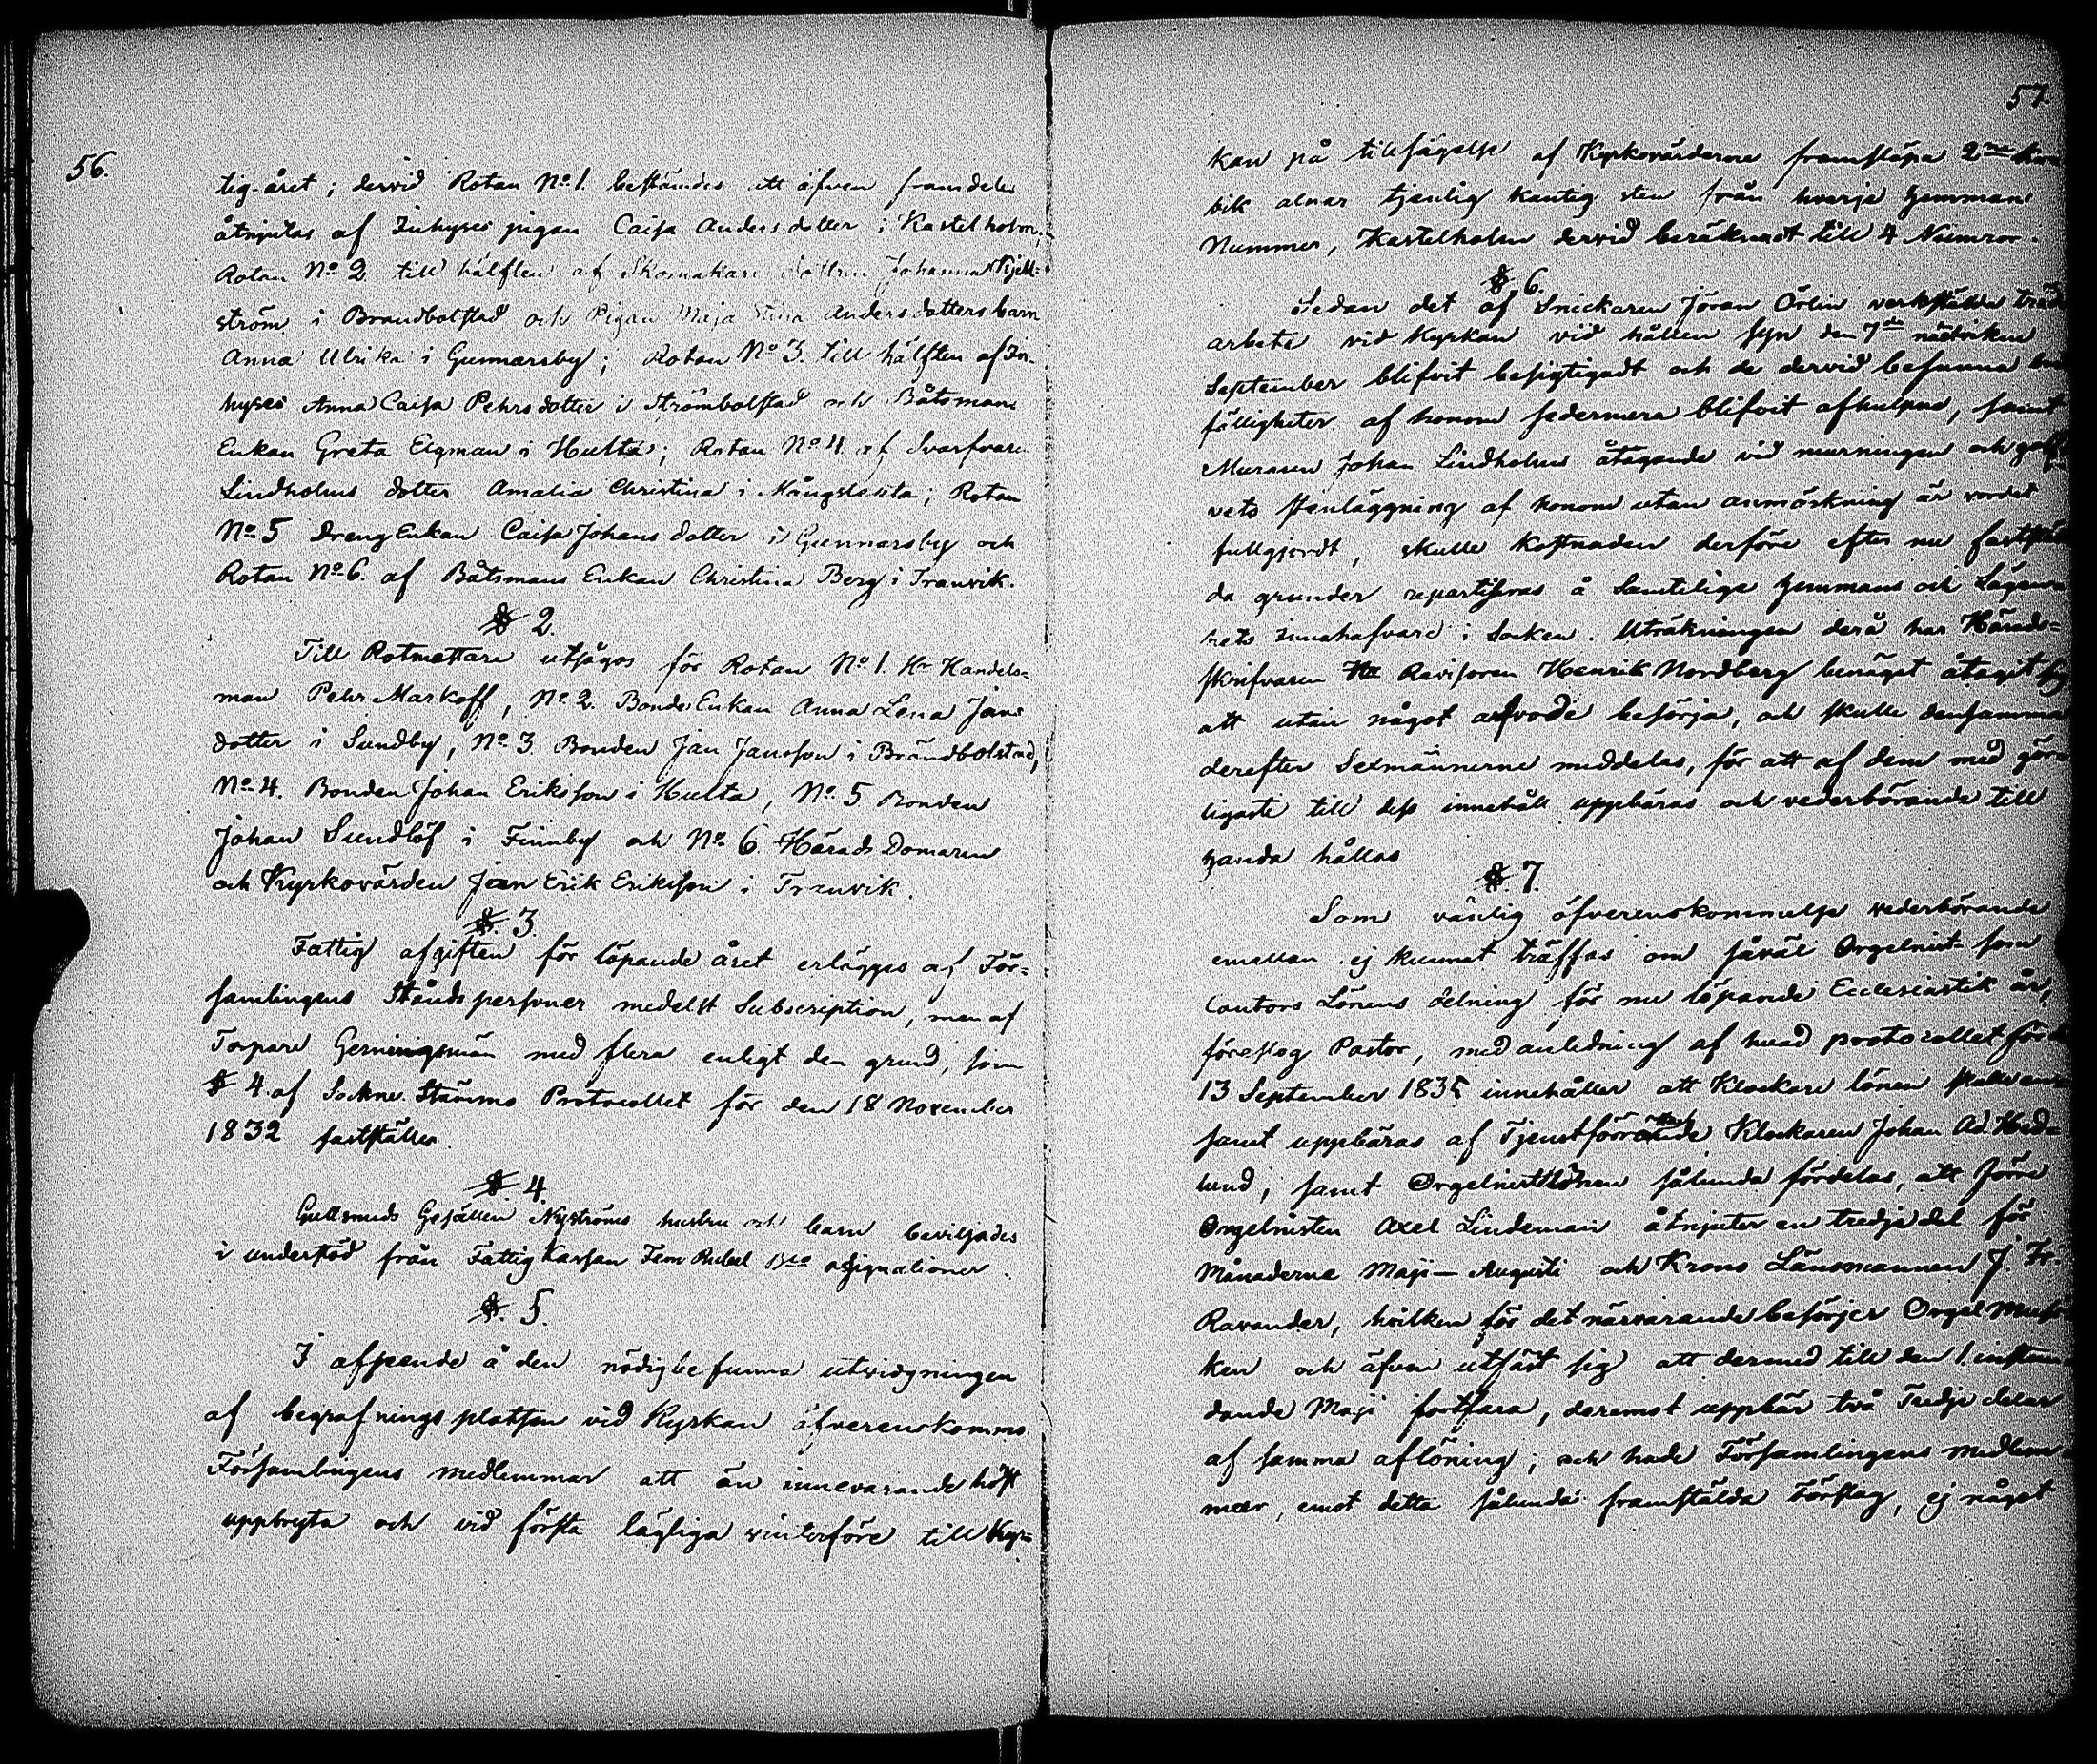 56.
tig-året; dervid Rotan No. 1. bestämdes att äfven framdeles
åtnjutas af Inhyses pigan Caisa Anders dotter i Kastelholm;
Rotan No. 2 till hälften af Skomakare dottren Johanna Kjell-
ström i Brandbolstad och Pigan Maja Stina Andersdotters barn
Anna Ulrika i Gunnarsby; Rotan No. 3. till hälften af In-
hyses Anna Caisa Pehrsdotter i Strömbolstad och Båtsmans
Enkan Greta Eigman i Hulta; Rotan No. 4. af Svarfvaren
Lindholms dotter Amalia Christina i Mångstekta; Rotan
No. 5 Dreng Enkan Caisa Johansdotter i Gunnarsby och
Rotan No. 6. af Båtsmans Enkan Christina Berg i Tranvik.
§ 2.
Till Rotmästare utsågos för Rotan No. 1. Hr Handels=
man Pehr Markoff, No. 2. Bonde Enkan Anna Lena Jans
dotter i Sundby, No. 3 Bonden Jan Jansson i Brändbolstad,
No. 4. Bonden Johan Eriksson i Hulta, No. 5 Bonden
Johan Sundlöf i Finnby och No. 6. Härads Domaren
och Kyrkovärden Jan Erik Eriksson i Tranvik.
§. 3.
Fattig afgiften för löpande året erlägges af För=
samlingens Ståndspersoner medelst Subscription, men af
Torpare Gerningsmän med flera enligt den grund, som
§ 4 af Sockne Stämmo Protocollet för den 18 November
1832 fastställer.
§. 4.
Gullsmeds Gesällen Nyströms hustru och barn beviljades
i understöd från Fattig Kassan Fem Rubel Bco assignationer.
§. 5.
I afseende å den nödigbefunna utvidgningen
af begrafningsplatsen vid Kyrkan öfverenskommo
Församlingens medlemmar att än innevarande höst
uppbryta och vid första lägliga vinterföre till Kyr=
57.
kan på tillsägelse af Kyrkovärderne framsläpa 2ne
bik alnar tjenlig kantig sten från hvarje hemmans
Nummer, Kastelholm dervid beräknadt till 4 Numror.
§. 6.
Sedan det af Snickaren Jöran Örlin verkställda träd
arbete vid Kyrkan vid hållen syn den 7de nästvikne
September blifvit besigtigadt och de dervid befunna
fälligheter af honom sedermera blifvit afhulpne, samt
Muraren Johan Lindholms åtagande vid murningen och golf
vets stenläggning af honom utan anmärkning är vordet
fullgjordt, skulle kostnaden derföre efter nu faststäl
da grunder repartiseras å Samtelige Hemmans och Lägen
hets innehafvare i Socken. Uträkningen derå har Härads=
skrifvaren Revisoren Henrik Nordberg benäget åtagit sig
att utan något arfvode besörja, och skulle densamma
derefter Sexmännerne meddelas, för att af dem med gör
ligaste till dess innehåll uppbäras och vederbörande till
handa hållas
§. 7.
Som vänlig öfverenskommelse vederbörande
emellan ej kunnat träffas om såväl Orgelnist- som
Cantors Lönens delning för nu löpande Ecclesiastik år,
föreslog Pastor, med anledning af hvad protocollet för den
13 September 1835 innehåller att Klockare lönen skulle
samt uppbäras af Tjenstförrättande Klockaren Johan Ad. Hed=
lund, samt Orgelnistlönen sålunda fördelas, att förre
Orgelnisten Axel Lindeman åtnjuter en tredjedel för
Månaderne Maji – Augusti och Krono Länsmannen J. Fr.
Ravander, hvilken för det närvarande besörjer Orgel Musi
ken och äfven utfäst sig att dermed till den 1. instun
dande Maji fortfara, deremot uppbär två Tredje delar
af samma aflöning; och hade Församlingens medlem
mar, emot detta sålunda framställda Förslag, ej något